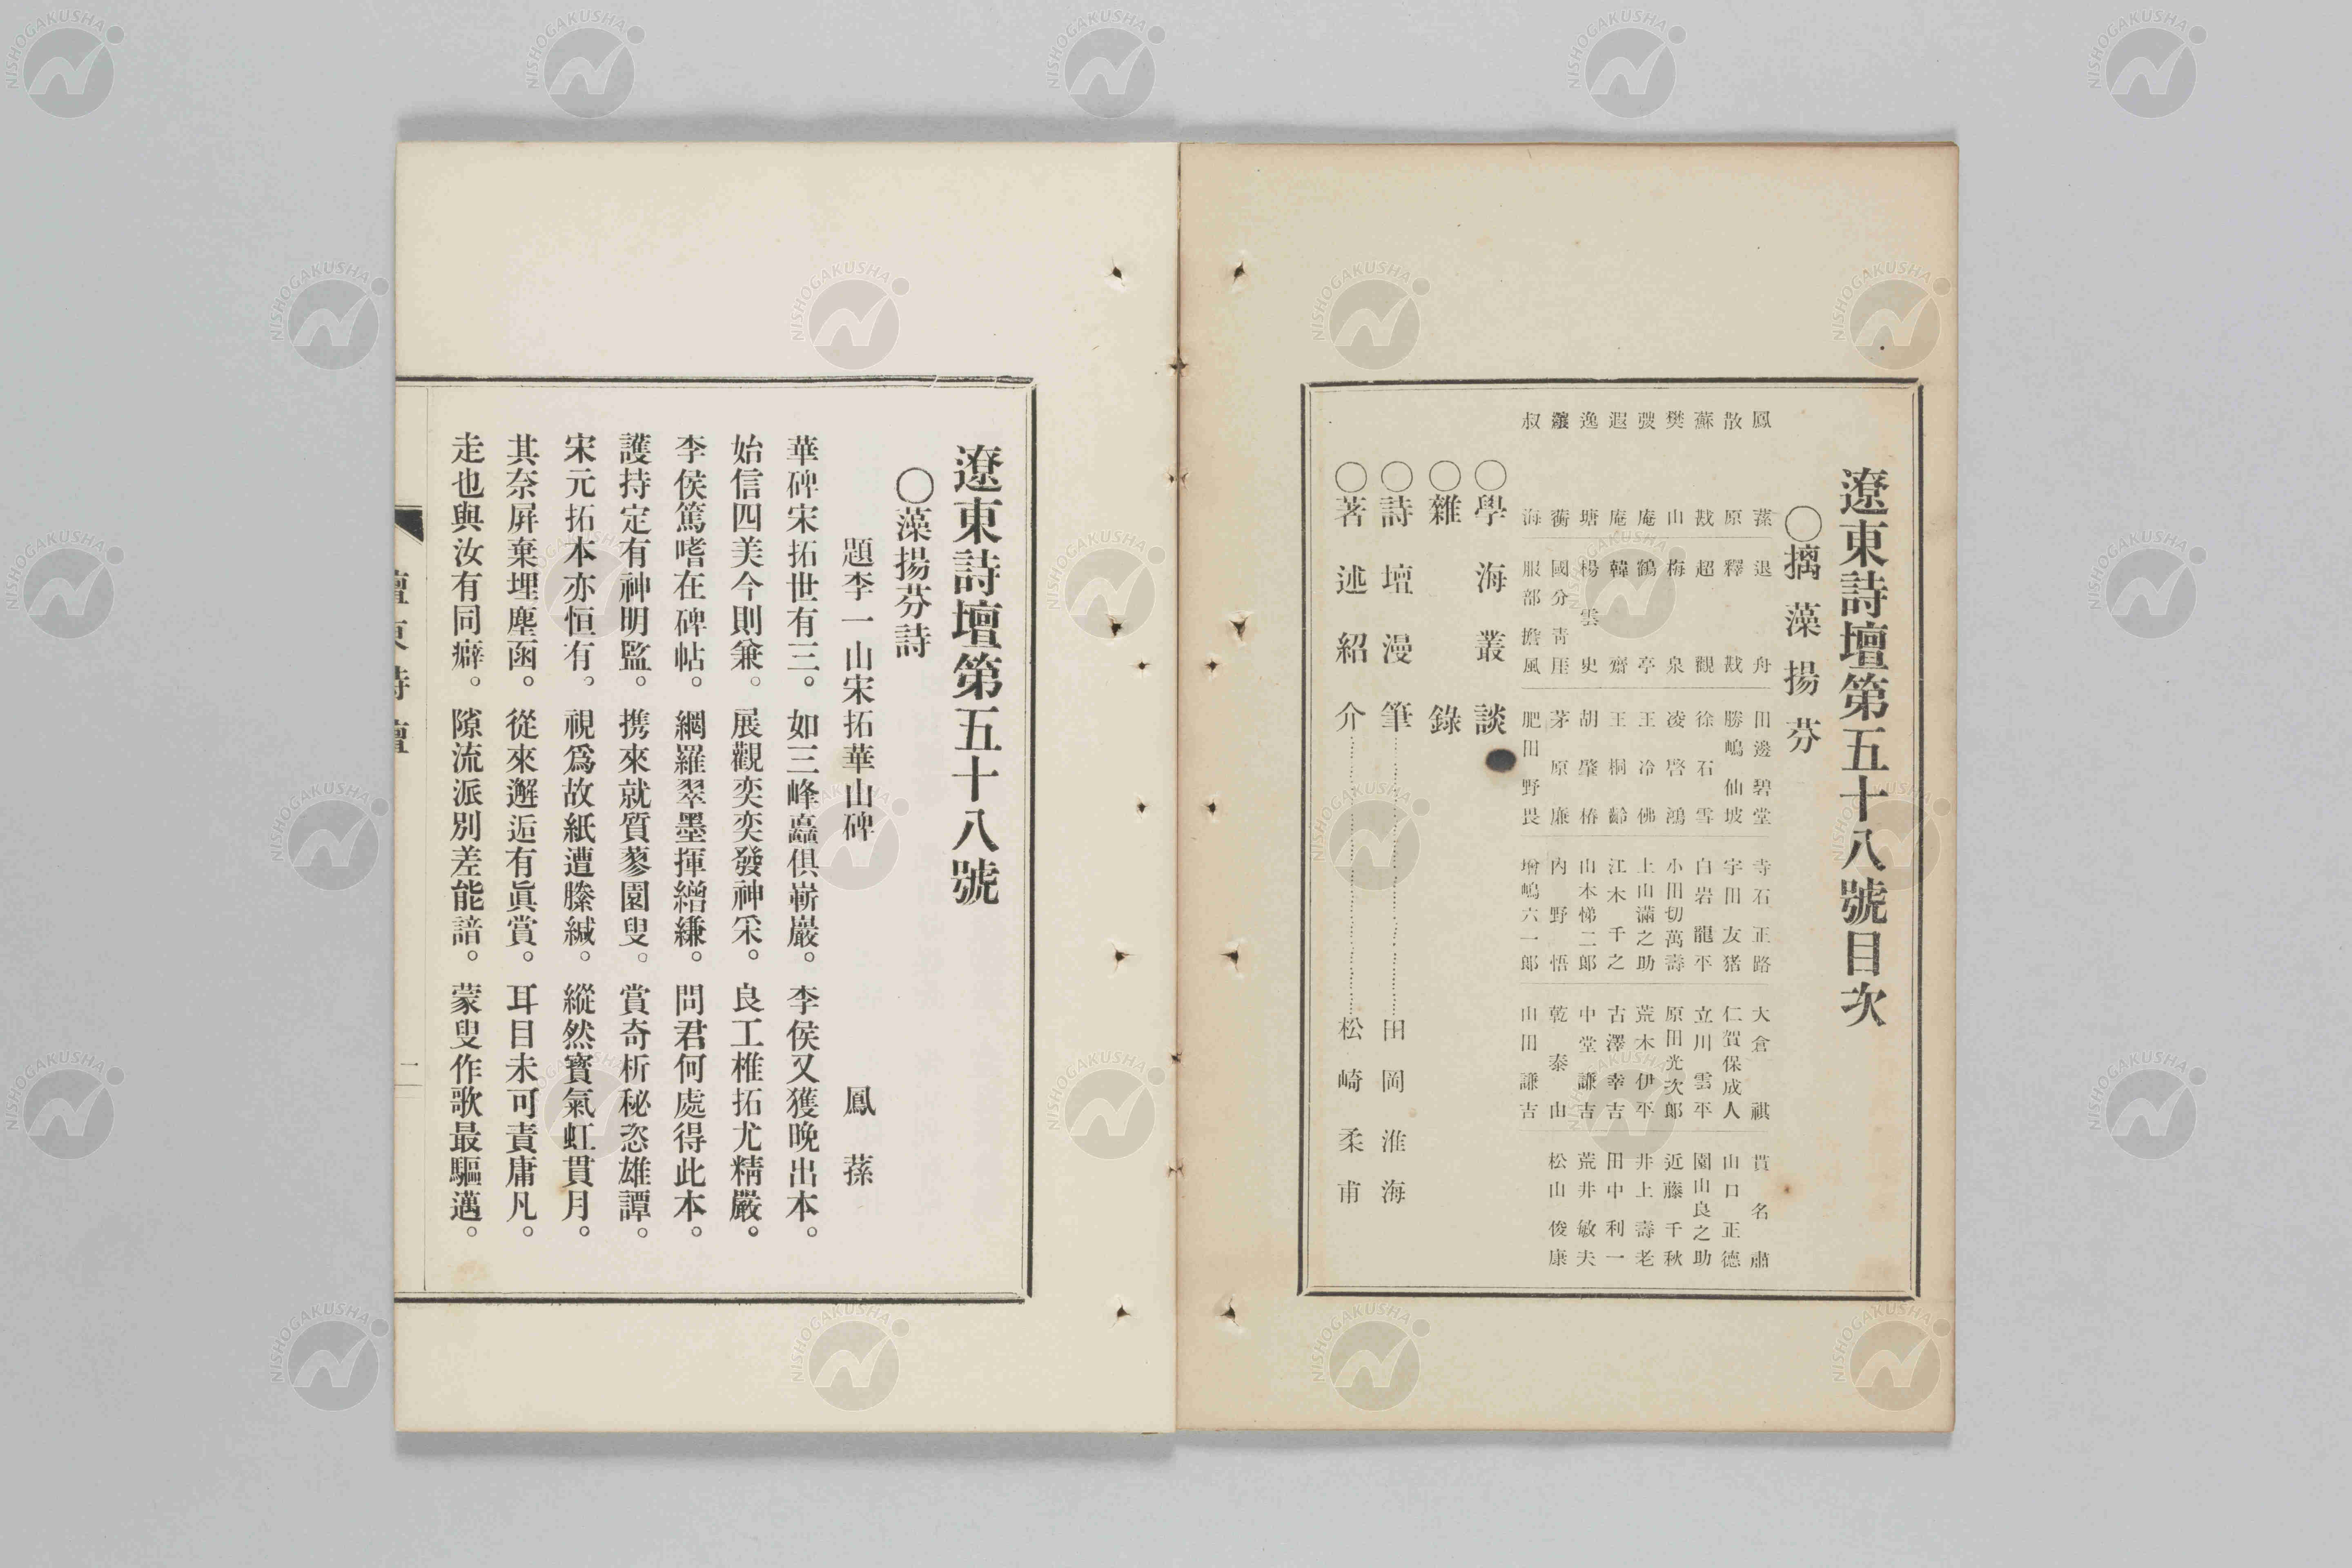 遼東詩壇第五十八號目次
○摛藻揚芬
鳳蓀 退舟 田邊碧堂 寺石正路 大倉祺 貫名肅
散原 釋戡 勝嶋仙坡 宇田友猪 仁賀保成人 山口正德
蘇戡 超觀 徐石雪 白岩龍平 立川雲平 園山良之助
樊山 梅泉 凌啓鴻 小田切萬壽 原田光次郎 近藤千秋
弢庵 鶴亭 王冷佛 上山滿之助 荒木伊平 井上壽老
遐庵 韓齋 王桐齡 江木千之 古澤幸吉 田中利一
逸塘 楊雲史 胡肇椿 山本悌二郎 中堂謙吉 荒井敏夫
蘅 國分青厓 茅原廉 內野悟 乾泰山 松山俊康
叔海 服部擔風 肥田野畏 增嶋六一郎 山田謙吉
○學海叢談
○雜錄
○詩壇漫筆 田岡淮海
○著述紹介 松崎柔甫
遼東詩壇第五十八號
○藻揚芬詩
題李一山宋拓華山碑 鳳蓀
華碑宋拓世有三。如三峰矗俱嶄巖。李侯又獲晚出本。
始信四美今則兼。展觀奕奕發神采。良工椎拓尤精嚴。
李侯篤嗜在碑帖。網羅翠墨揮繒縑。問君何處得此本。
護持定有神明監。携來就質蓼園叟。賞奇析秘恣雄譚。
宋元拓本亦恒有。視爲故紙遭縢緘。縱然寶氣虹貫月。
其奈屏棄埋塵函。從來邂逅有眞賞。耳目未可責庸凡。
走也與汝有同癖。隙流派別差能諳。蒙叟作歌最驅邁。
二
NISHOGAKUSHA